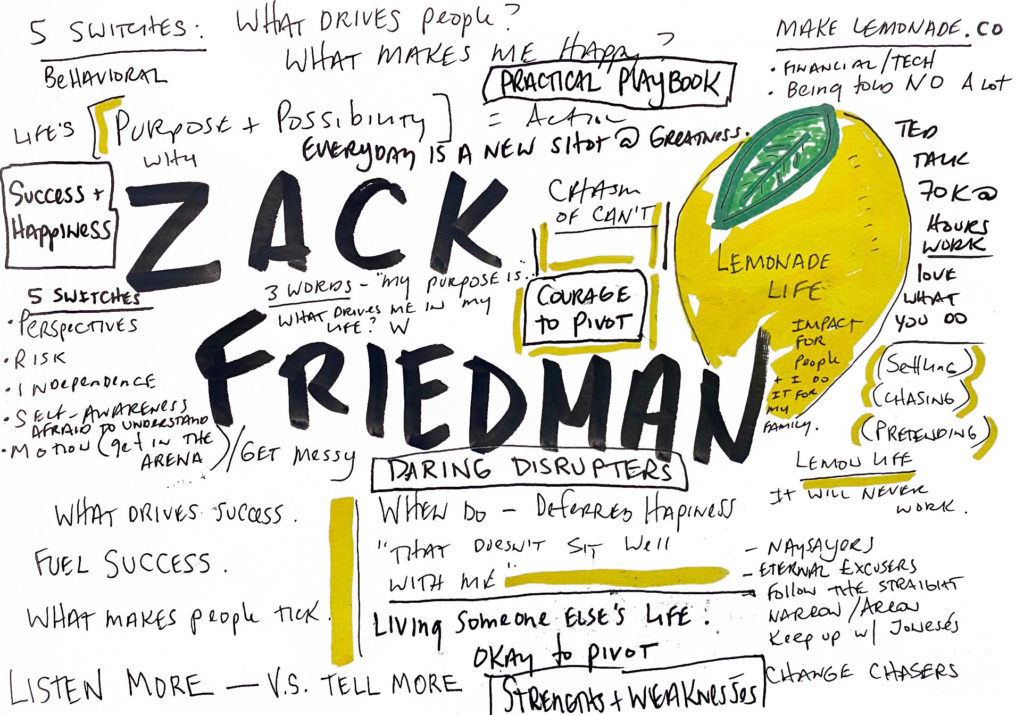 5 SWITCHES:
BEHAVIORAL
WHAT DRIVES people?
WHAT MAKES ME Happy?
PRACTICAL PLAYBOOK
MAKE LEMONADE.CO
• FINANCIAL/TECH
• Being told NO A LOT
LIFE'S [PURPOSE + POSSIBILITY] = Action
WHY
EVERYDAY IS A NEW SHOT @ GREATNESS.
SUCCESS +
HAPPINESS
ZACK
FRIEDMAN
CHASM
OF CAN'T
COURAGE
to PIVOT
3 WORDS - "MY PURPOSE IS...
WHAT DRIVES ME IN MY
LIFE? W
LEMONADE
LIFE
IMPACT
FOR
People
+ I DO
IT FOR
my
FAMILY.
TED
TALK
70K @
HOURS
WORK
LOVE
WHAT
YOU DO
(Settling)
(CHASING)
(PRETENDING)
LEMON LIFE
IT WILL NEVER
WORK.
5 SWITCHES
• PERSPECTIVES
• RISK
• INDEPENDENCE
• SELF-AWARENESS
AFRAID TO UNDERSTAND
• MOTION (get IN THE
ARENA)/GET MESSY
DARING DISRUPTERS
WHAT DRIVES SUCCESS.
FUEL SUCCESS.
WHAT MAKES people TICK.
LISTEN MORE — V.S. TELL MORE
WHEN DO - DeFerred HAPINESS
"THAT DOESN'T SIT Well
WITH ME"
LIVING SOMEONE ELSE'S LIFE.
OKAY to PIVOT
STRENGTHS + WEAKNESSES
- NAYSAYORS
- ETERNAL EXCUSERS
- Follow THE STRAIGHT
NARROW/ARROW
Keep up w/ JONESES
CHANGE CHASERS